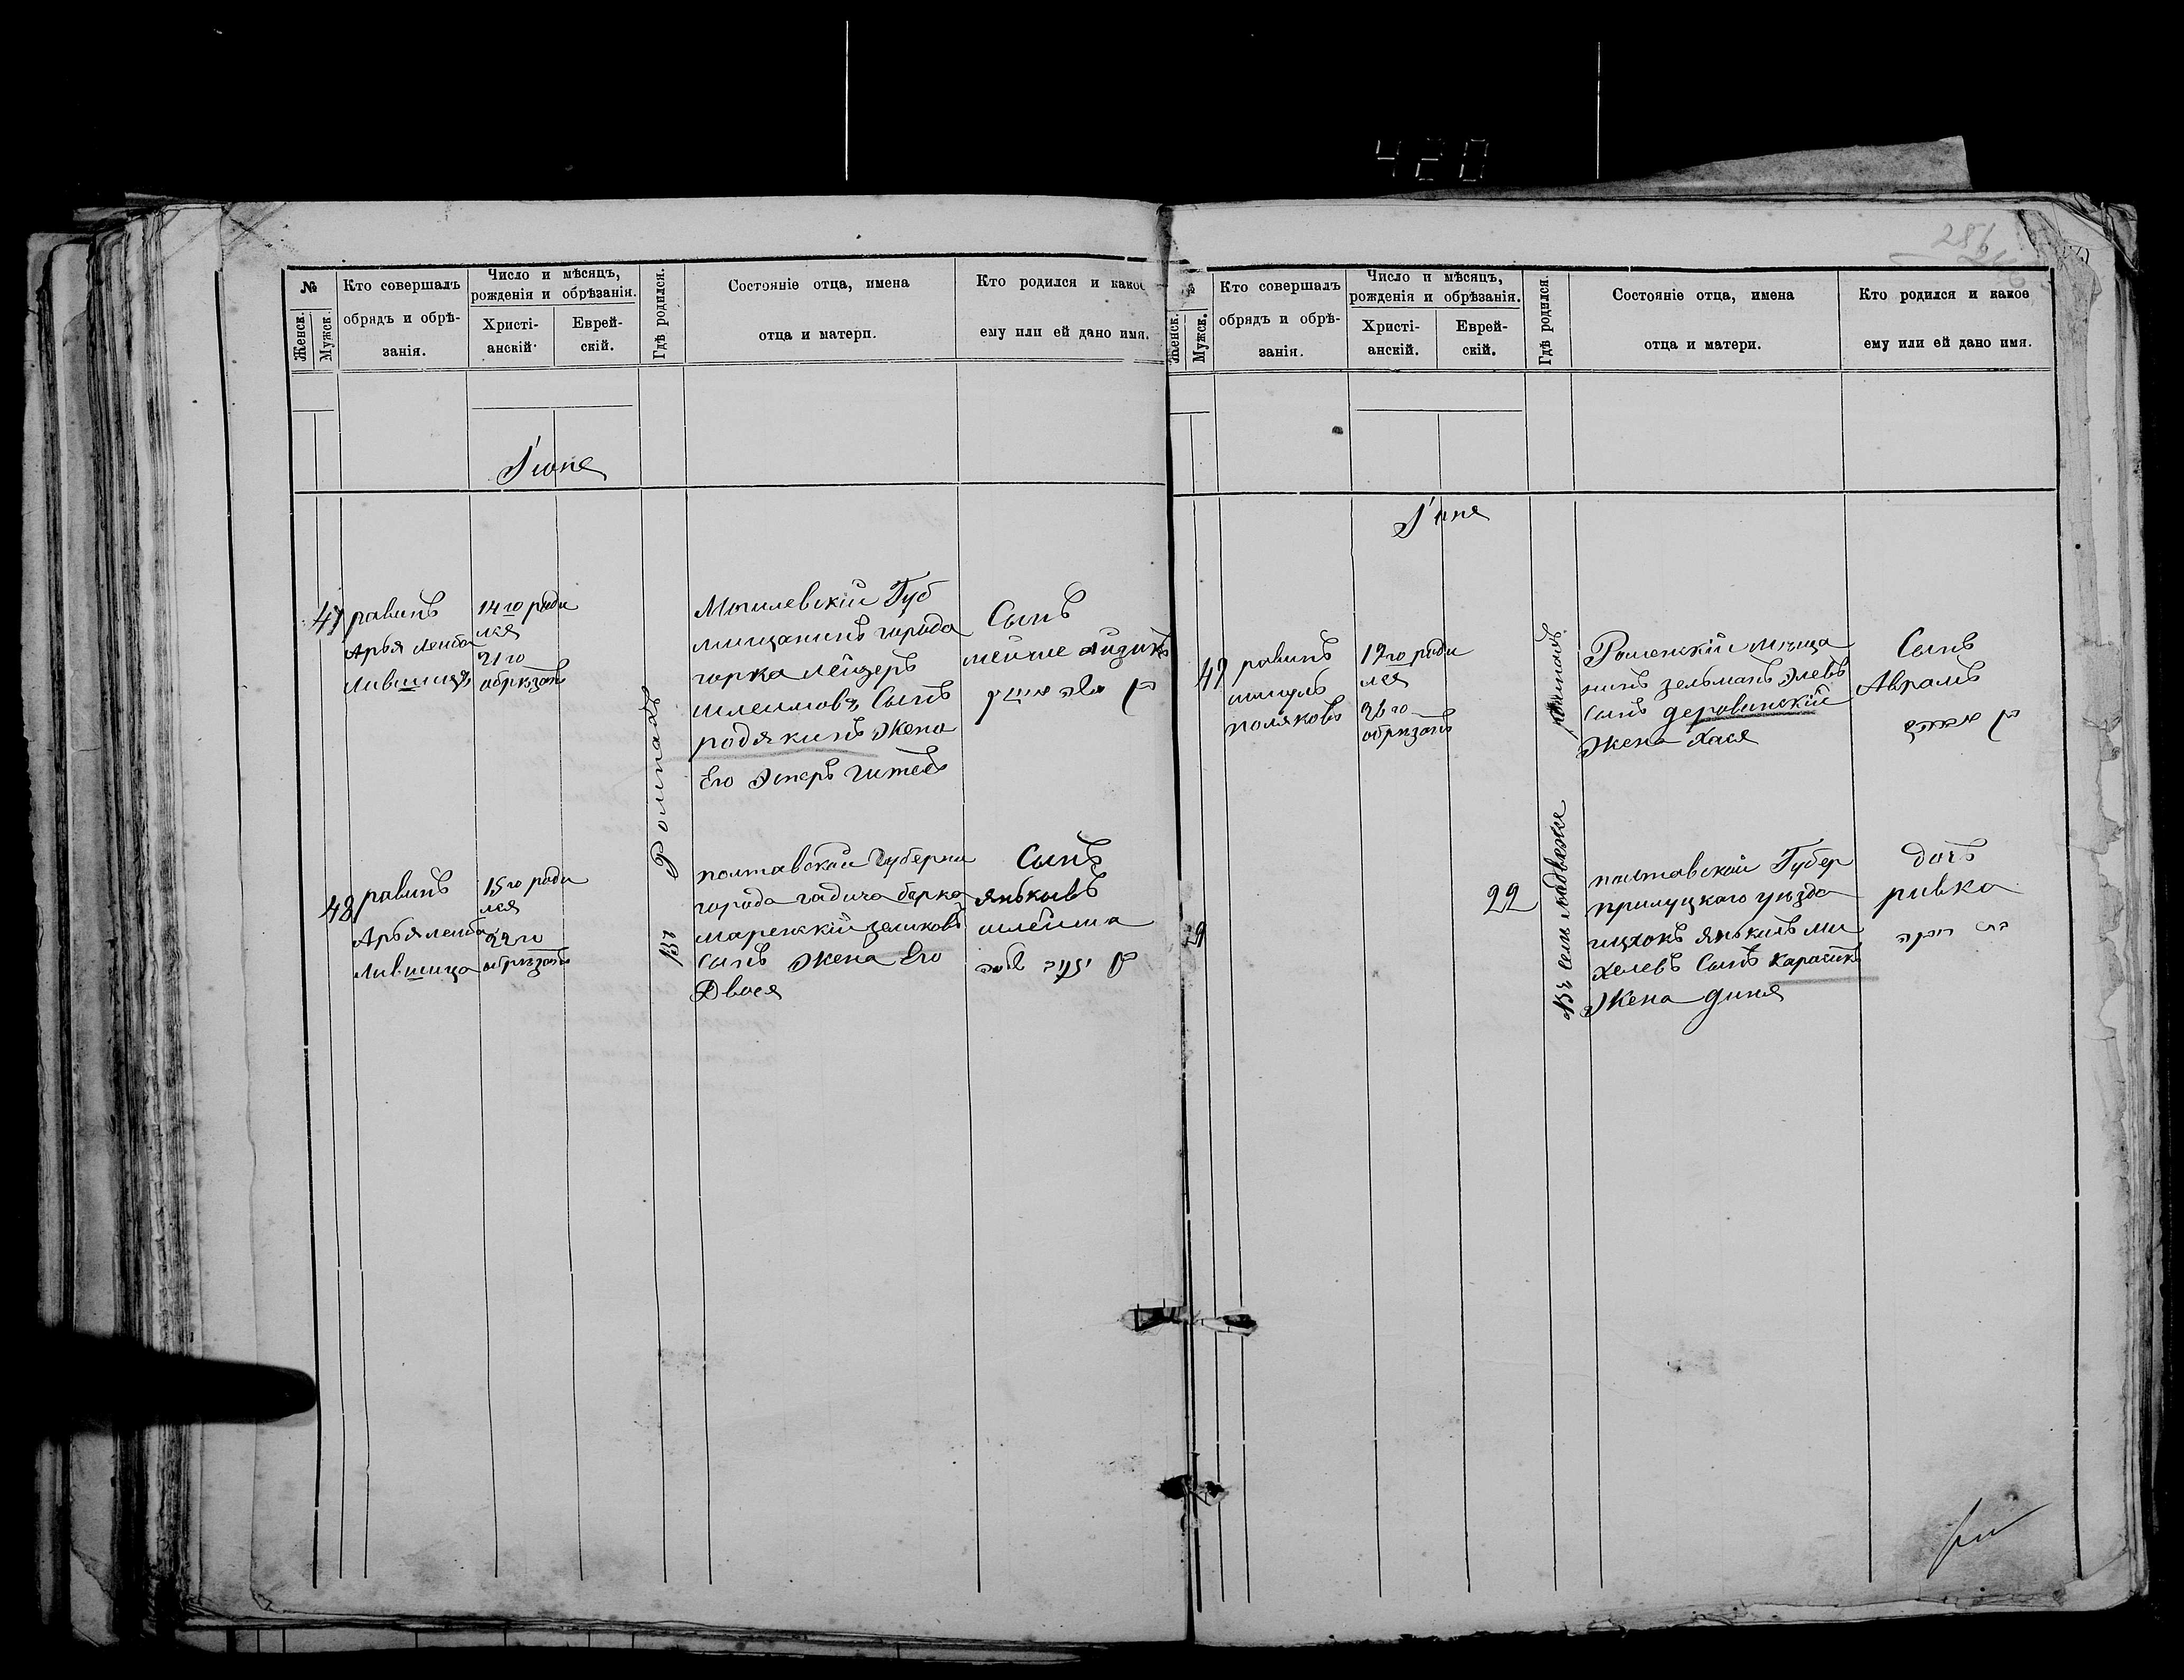 420
286
№
Женск.
Мужск.
Кто совершалъ
обрядъ и обрѣ-
занія.
Число и мѣсяцъ,
рожденія и обрѣзанія.
Христі-
анскій.
Еврей-
скій.
Гдѣ родился.
Состояніе отца, имена
отца и матери.
Кто родился и какое
ему или ей дано имя.
Іюня
47
равинъ
Арья Лейба
Лившица
14го роди
лся
21го
обрезанъ
Въ Ромнахъ
Могилевской Губ
мищанинъ города
горка Лейзеръ
шлеимовъ Сынъ
родякинъ Жена
Его Эстеръ
Сынъ
48
равинъ
Арья лейба
Лившица
15го роди
лся
22го
обрезанъ
полтавской Губерни
города гадича берка
зеликовъ
Сынъ Жена Его
Двося
Сынъ
янкивъ
шлеима
יעקב שלמה
№
Женск.
Мужск.
Кто совершалъ
обрядъ и обрѣ-
занія.
Число и мѣсяцъ,
рожденія и обрѣзанія.
Христі-
анскій.
Еврей-
скій.
Гдѣ родился.
Состояніе отца, имена
отца и матери.
Кто родился и какое
ему или ей дано имя.
Іюня
49
равинъ
шмуль
поляковъ
19го роди
лся
26го
обрезанъ
Роменский мища
нинъ зельманъ Элевъ
Сынъ деровинский
Жена Хася
Сынъ
Аврамъ
29
22
Въ сели
полтавской Губер
прилуцкого уезда
ицхокъ янкилъ ми
хелевъ Сынъ Карасикъ
Жена диня
дочъ
ривка
רבקה